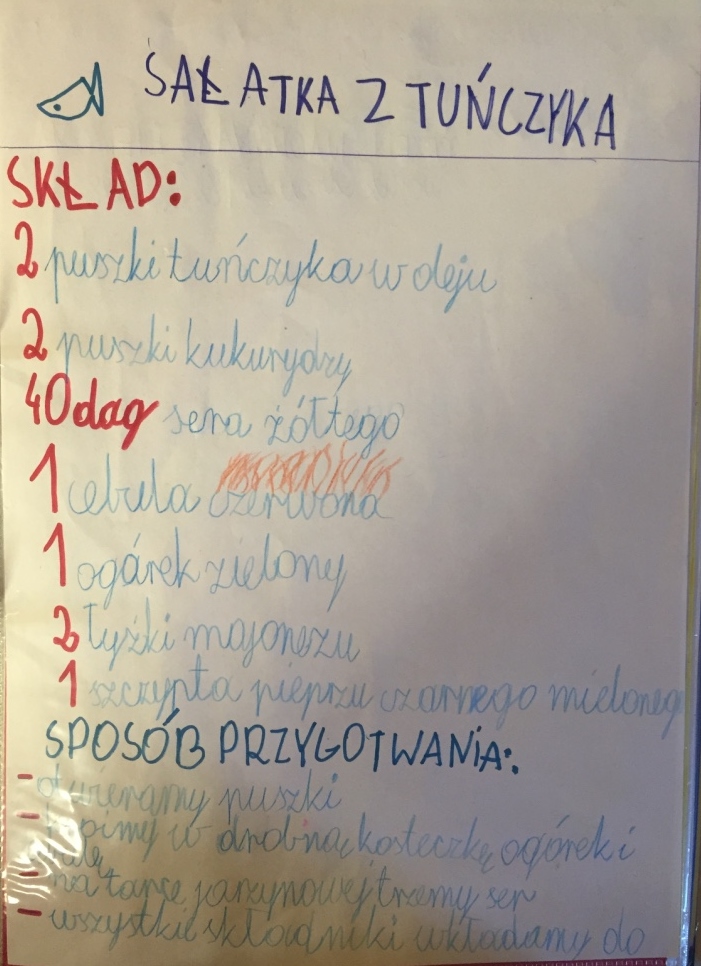 SAŁATKA Z TUŃCZYKA
SKŁAD:
2 puszki tuńczyka w oleju
2 puszki kukurydzy
40 dag sera żółtego
1 cebula czerwona
1 ogórek zielony
2 łyżki majonezu
1 szczypta pieprzu czarnego mielonego
SPOSÓB PRZYGOTWANIA:
- otwieramy puszki
- kroimy w drobną kosteczkę ogórek i
- na tarce jarzynowej trzemy ser
- wszystkie składniki wkładamy do